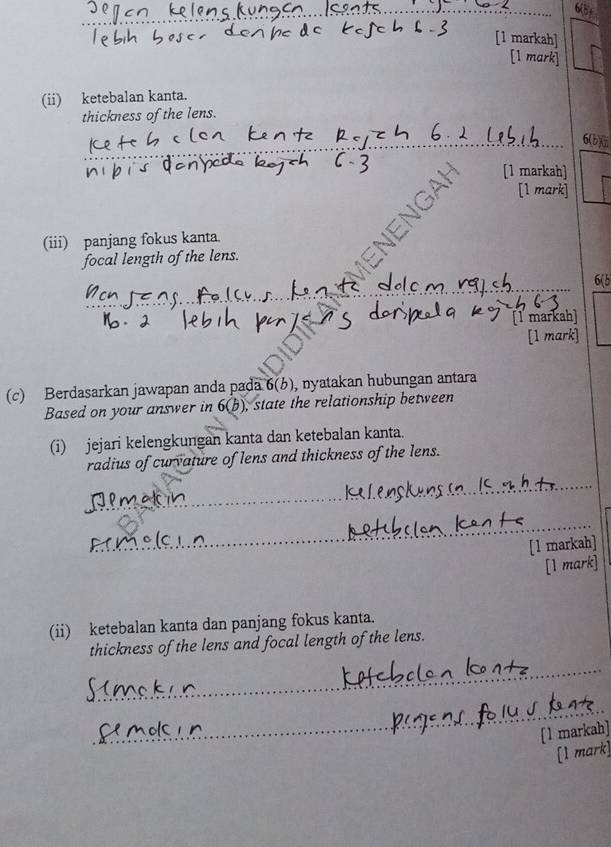 6.2
lebih besar daripada Rajah 6.3
[1 markah]
[1 mark]
(ii) ketebalan kanta.
thickness of the lens.
ketebalan kanta Rajah 6.2 lebih
6(b)(ii)
nipis daripada Rajah 6.3
[1 markah]
[1 mark]
(iii) panjang fokus kanta.
focal length of the lens.
fokus kanta dalam rajah
6(b
6.2 lebih daripada rajah 6.3
[1 markah]
[1 mark]
(c) Berdasarkan jawapan anda pada 6(b), nyatakan hubungan antara
Based on your answer in 6(b), state the relationship between
(i) jejari kelengkungan kanta dan ketebalan kanta.
radius of curvature of lens and thickness of the lens.
semakin kelengkungan kanta
semakin ketebalan kanta
[1 markah]
[1 mark]
(ii) ketebalan kanta dan panjang fokus kanta.
thickness of the lens and focal length of the lens.
semakin ketebalan kanta
semakin fokus kanta
[1 markah]
[1 mark]
BAHAGIAN PENDIDIKAN MENENGAH